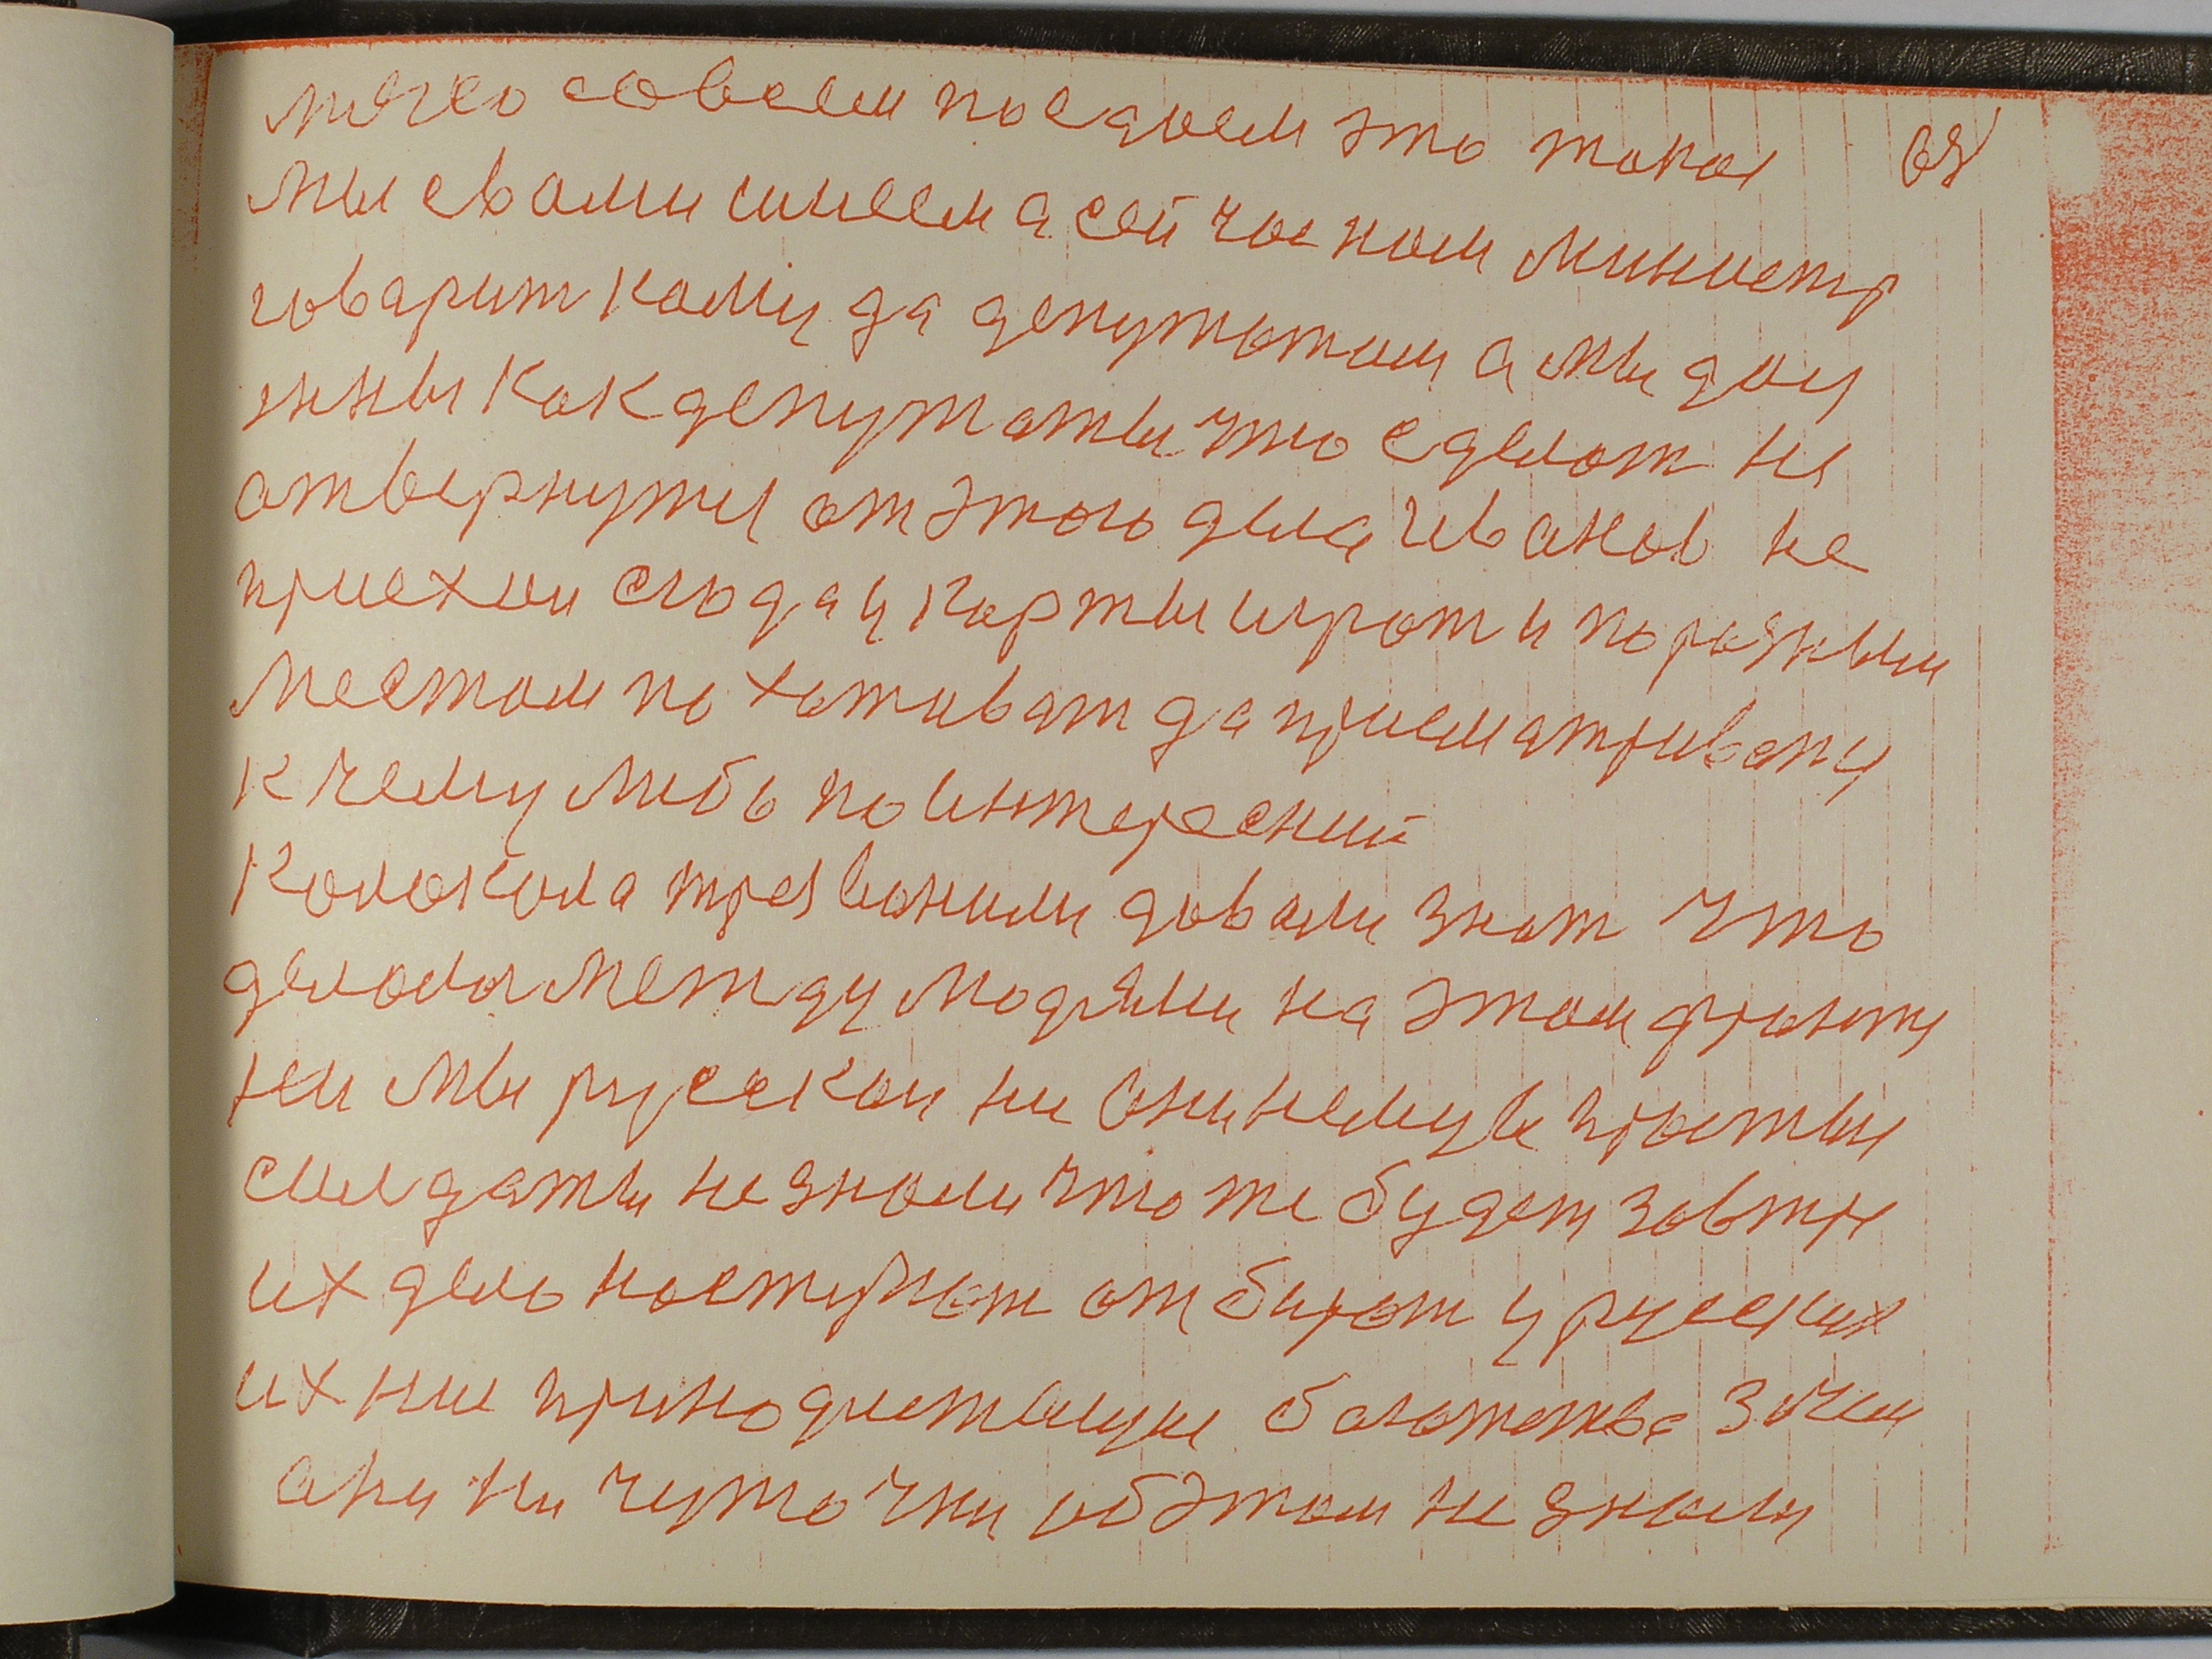 лего совсем поедием это такая 68
мы свами имеем а сей час нам министр
говарит кому да депутатам а мы дол
жны как депутаты что сделат не
отвернутся от этого дела Иванов не
приехал сюда у карты играт и по разным
местам по хаживат да присматриват
к чему либо по интересний
Колокола трезвонили давали знат что
делалоя между людями на этом фронту
ни мы русскаи ни они немцы простыи
салдаты не знали что же будет завтре
их дело наступат отбират у русских
их нии принодлежащие богатства зачем
ани ни чуточки об этом не знали